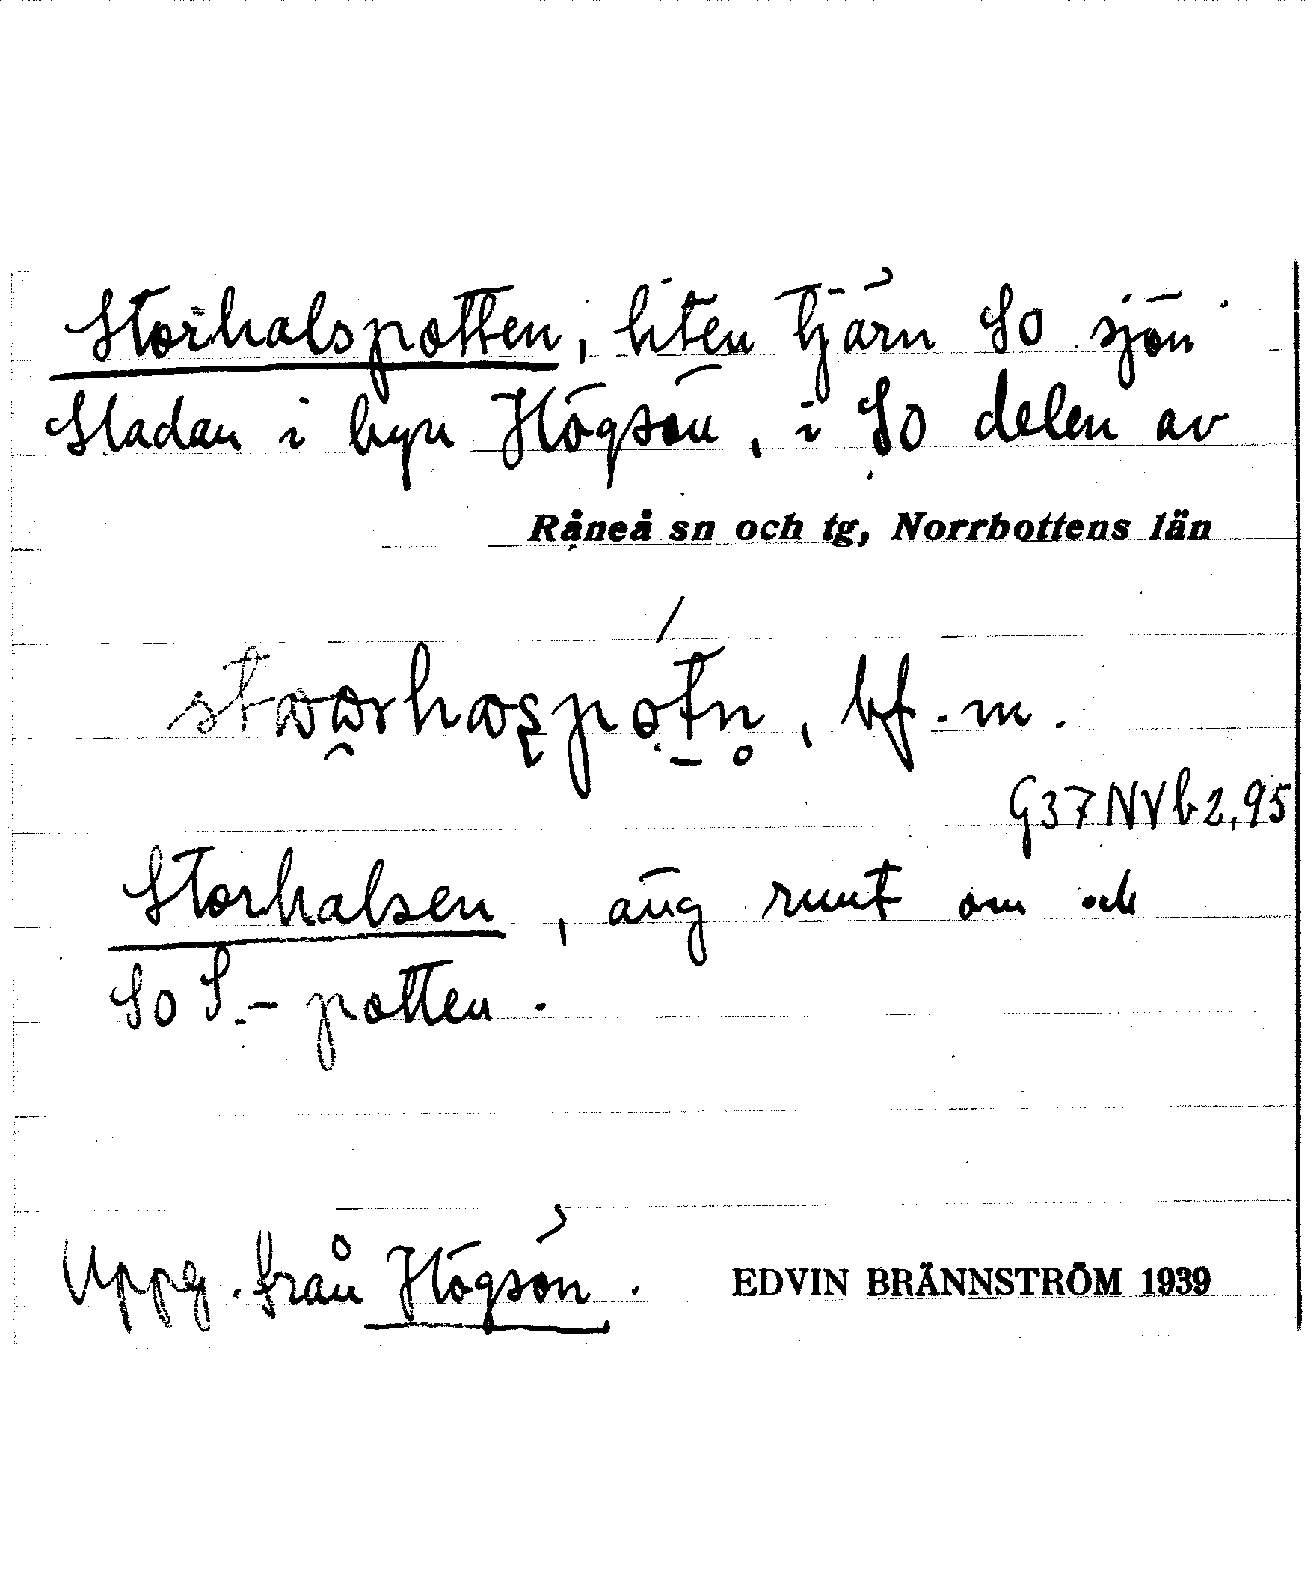 Storhalspotten, liten tjärn SO sjön
Sladan i byn Högsön, i SO delen av
Råneå sn och tg, Norrbottens län
bf. m.
G37NVb2,95
Storhalsen, äng runt om och
SO S.-potten.
Uppg. från Högsön. EDVIN BRÄNNSTRÖM 1939